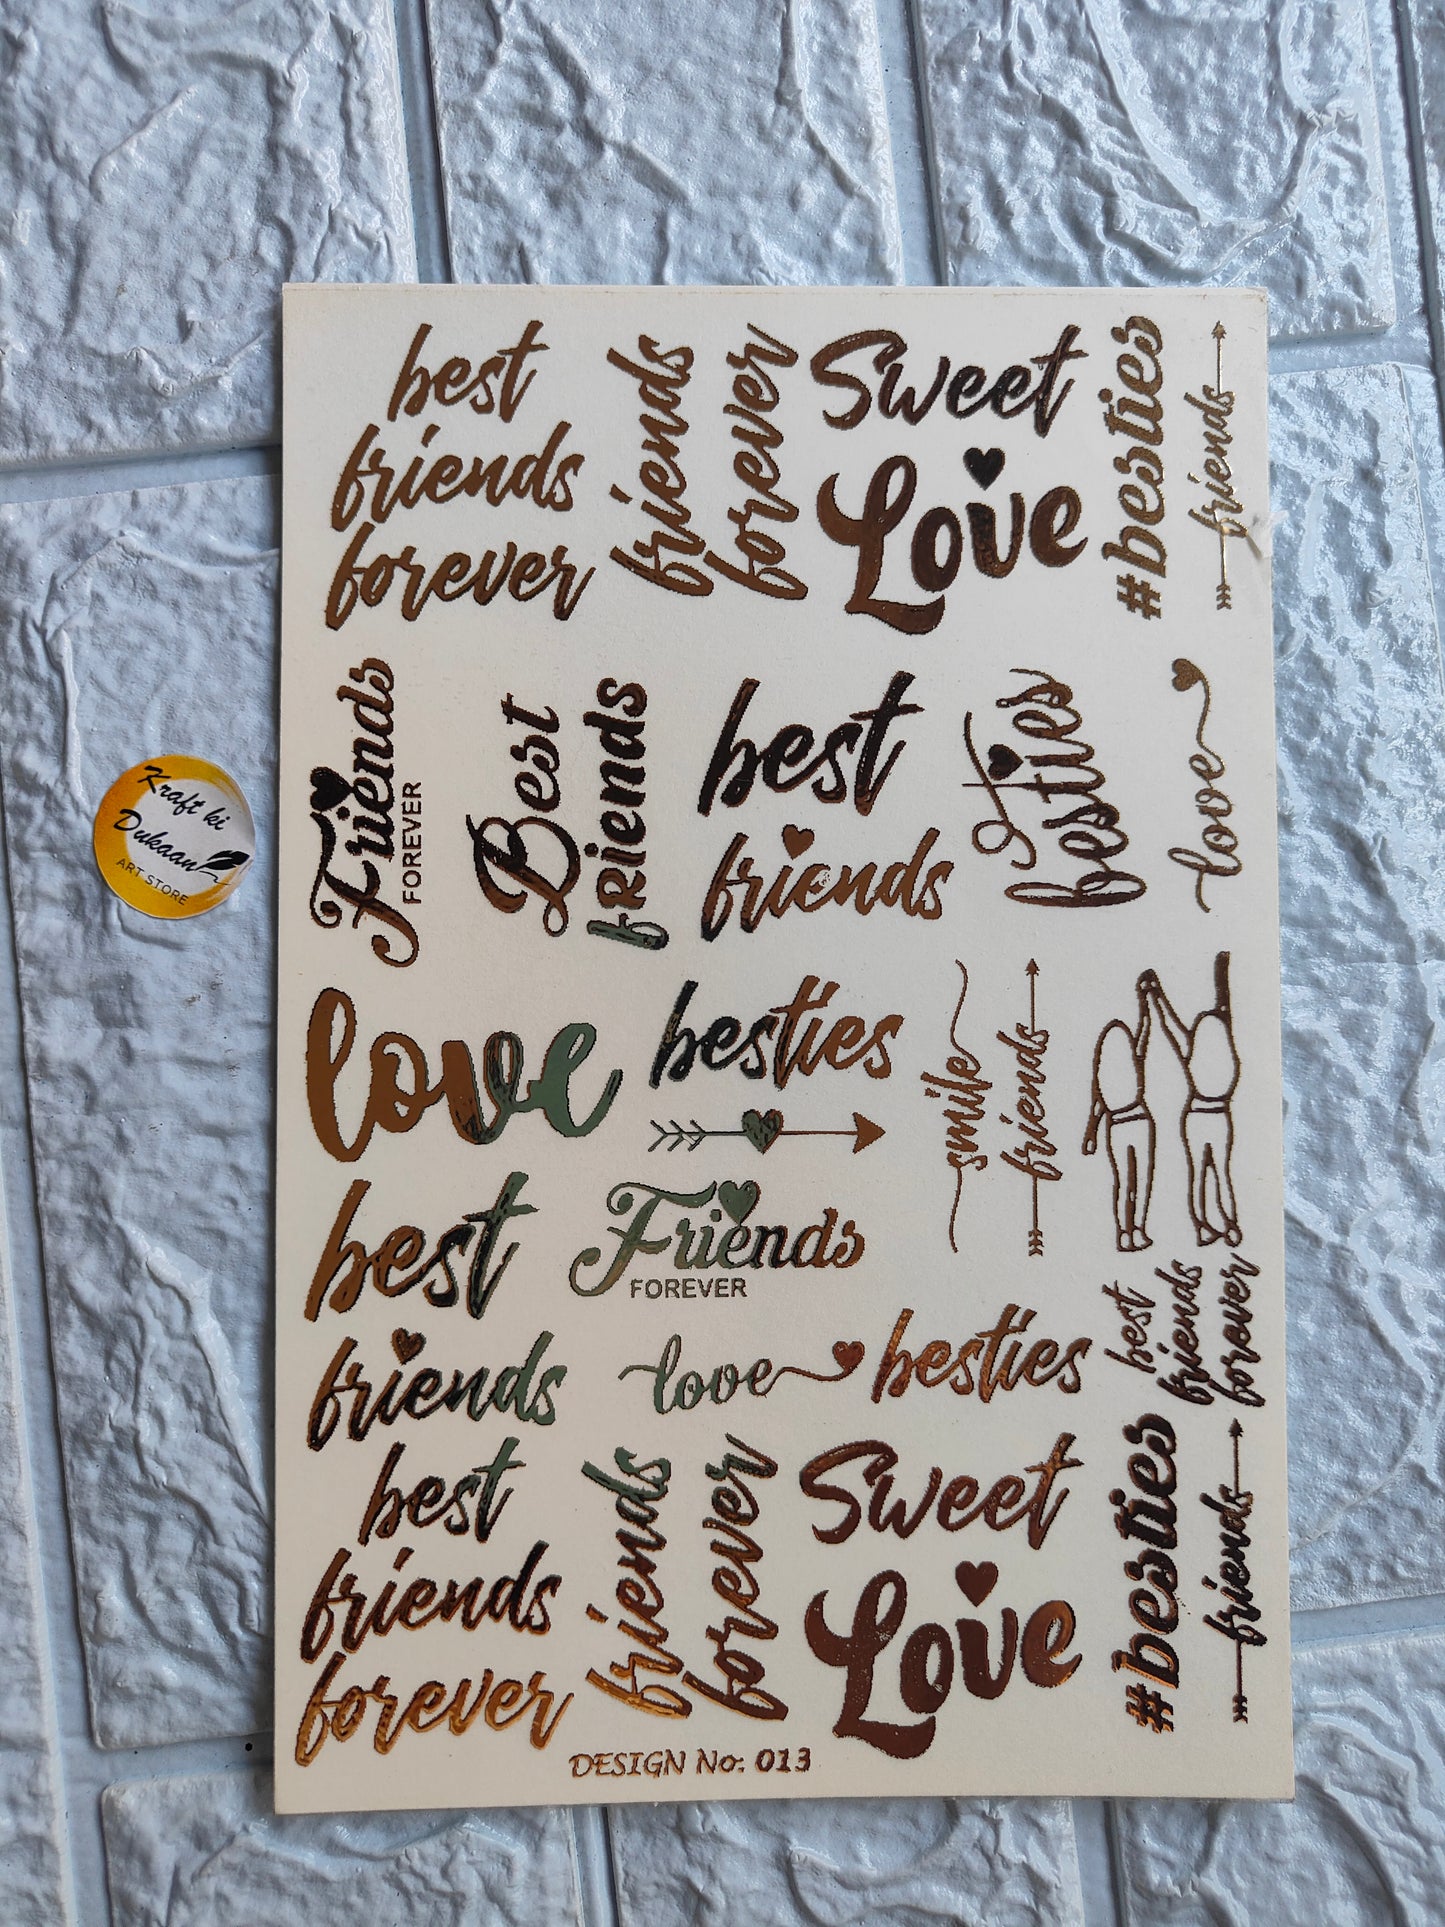 best
friends
forever
friends
forever
Sweet
Love
#besties
friends
Friends
FOREVER
Best
fRiends
best
friends
besties
love
Kraft ki
Dukaan
ART STORE
love
besties
smile
friends
best
friends
Friends
FOREVER
love
besties
best
friends
forover
best
friends
forever
friends
forever
Sweet
Love
#besties
friends
DESIGN No: 013